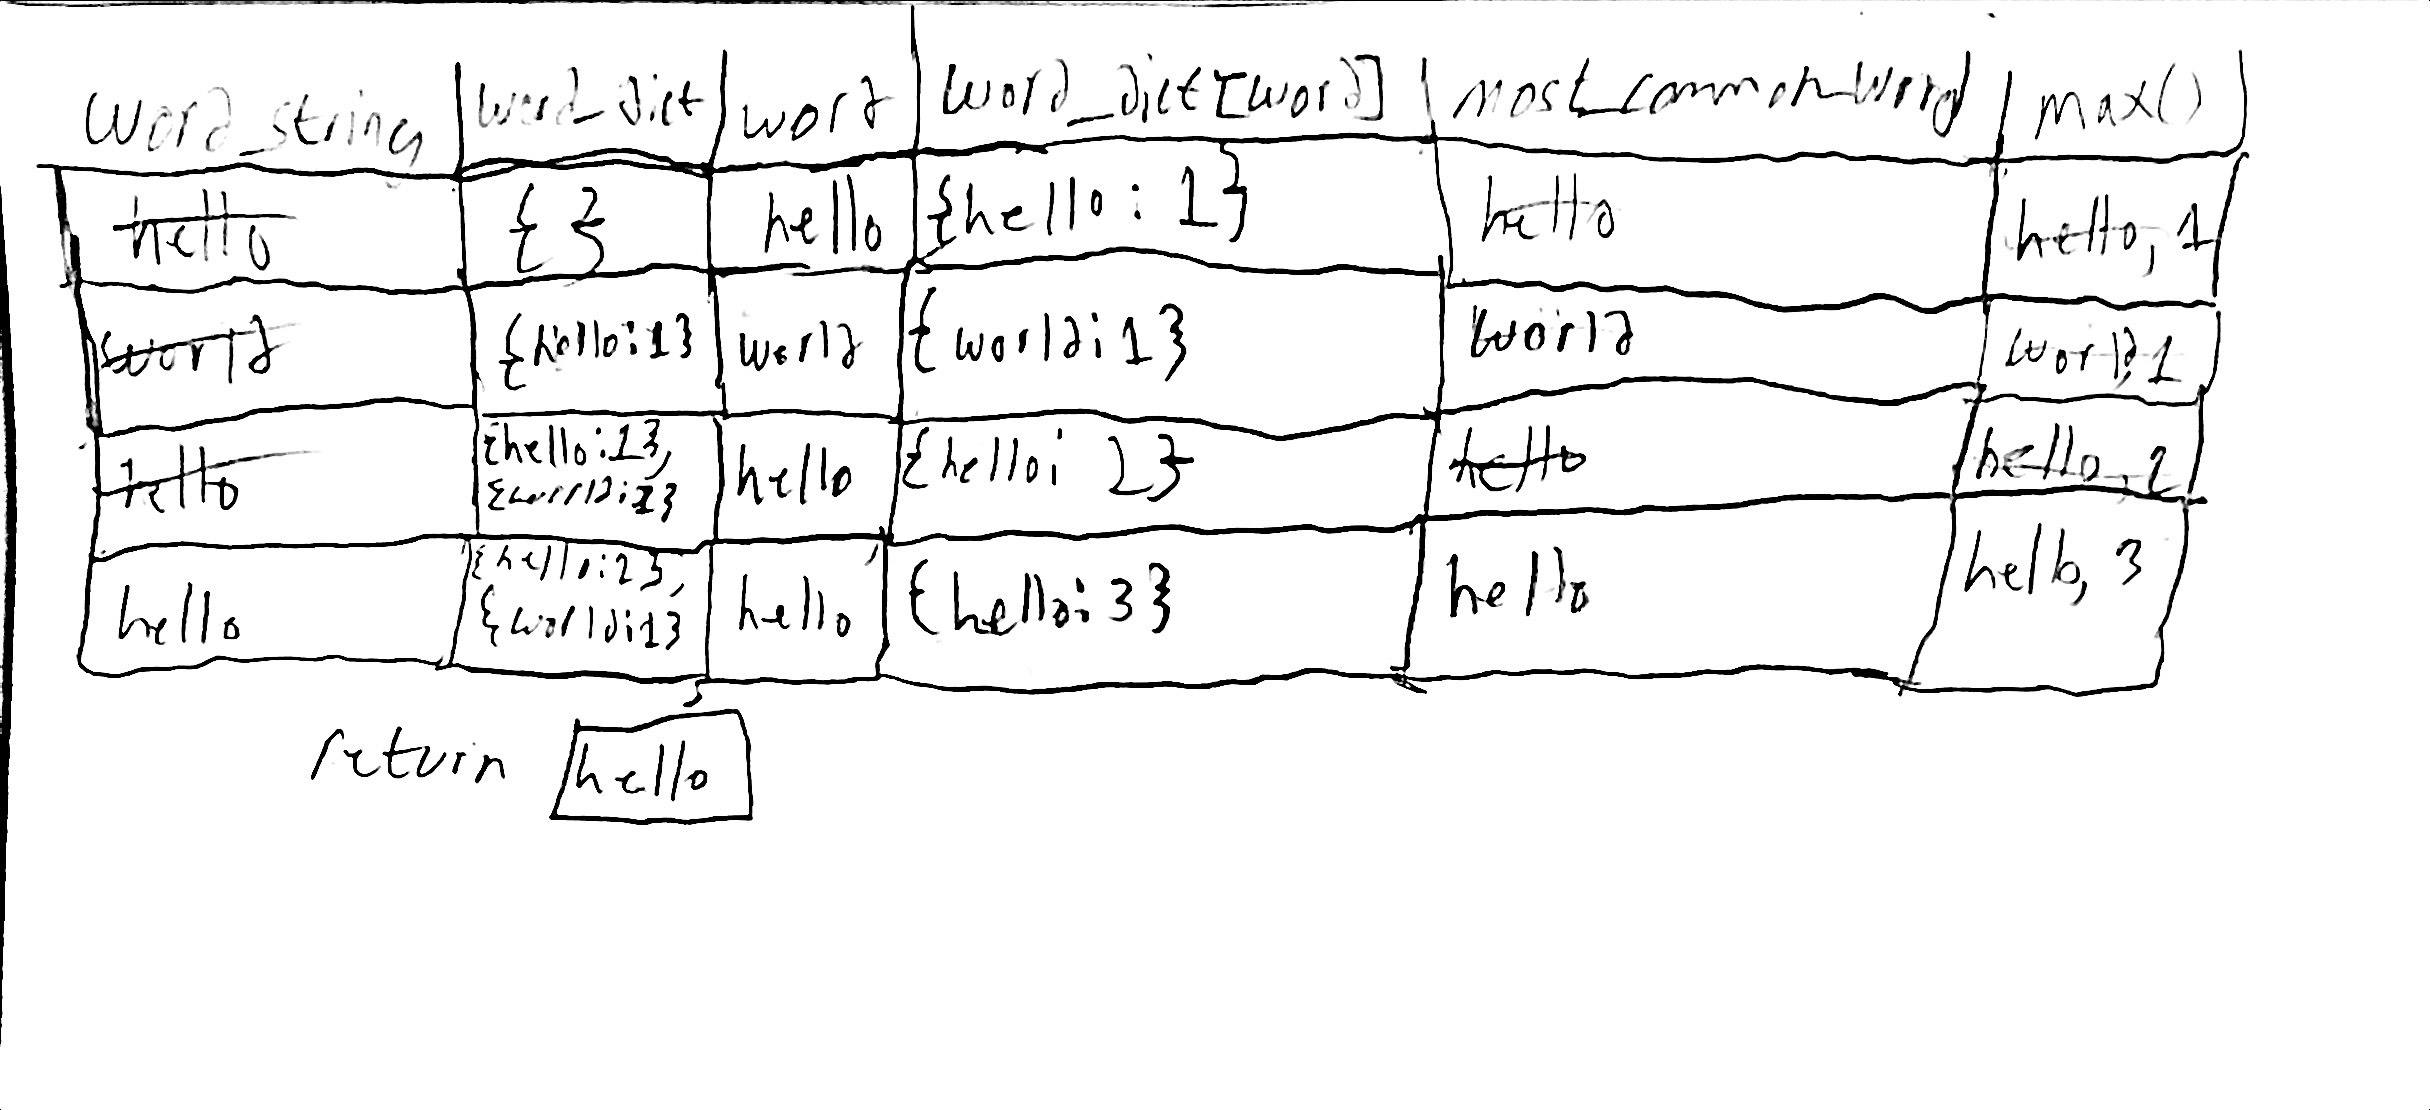 word_string word_dict word word_dict[word] most_common_word max()
hello { } hello {hello: 1} hello hello, 1
world {hello:1} world {world:1} world world,1
hello {hello:1}, {world:1} hello {hello: 2} hello hello, 2
hello {hello:2}, {world:1} hello {hello:3} hello hello, 3
return hello